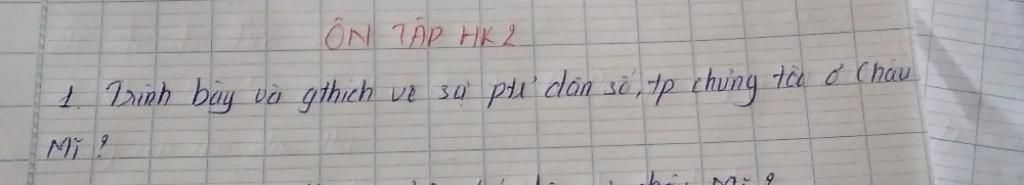 ÔN TẬP HK2
1. Trình bày và gthích về sự ptư dân số, tp chủng tộc ở Châu
Mĩ?